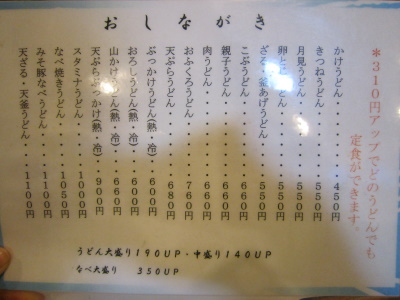 おしながき
*310円アップでどのうどんでも
定食ができます。
かけうどん・・・・・・450円
きつねうどん・・・・・550円
月見うどん・・・・・・550円
卵とじうどん・・・・・550円
ざる・釜あげうどん・・550円
こぶうどん・・・・・・550円
親子うどん・・・・・・660円
肉うどん・・・・・・・660円
おふくろうどん・・・・760円
天ぷらうどん・・・・・680円
ぶっかけうどん(熱・冷)・600円
おろしうどん(熱・冷)・・660円
山かけうどん(熱・冷)・・660円
天ぷらぶっかけ(熱・冷)・900円
スタミナうどん・・・・1000円
なべ焼きうどん・・・・1050円
みそ豚なべうどん・・・1100円
天ざる・天釜うどん・・1100円
うどん大盛り190UP・中盛り140UP
なべ大盛り 350UP